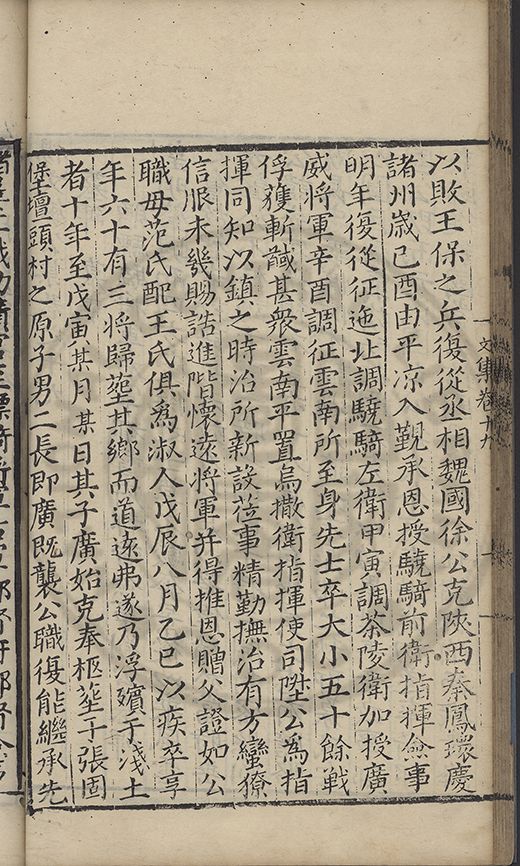 以敗王保之兵復從丞相魏國徐公克陝西奉鳳環慶
諸州歲己酉由平凉入覲承恩授驍騎前衛指揮僉事
明年復從征迤北調驍騎左衛甲寅調茶陵衛加授廣
威将軍辛酉調征雲南所至身先士卒大小五十餘戰
俘獲斬馘甚衆雲南平置烏撒衛指揮使司陞公為指
揮同知以鎮之時治所新設莅事精勤撫治有方蠻獠
信服未幾賜誥進階懷遠将軍并得推恩贈父證如公
職母范氏配王氏俱為淑人戊辰八月乙巳以疾卒享
年六十有三将歸塟其鄉而道遠弗遂乃浮殯于淺土
者十年至戊寅某月某日其子廣始克奉柩塟于張固
堡壇頭村之原子男二長即廣既襲公職復能繼承先
文集卷十九